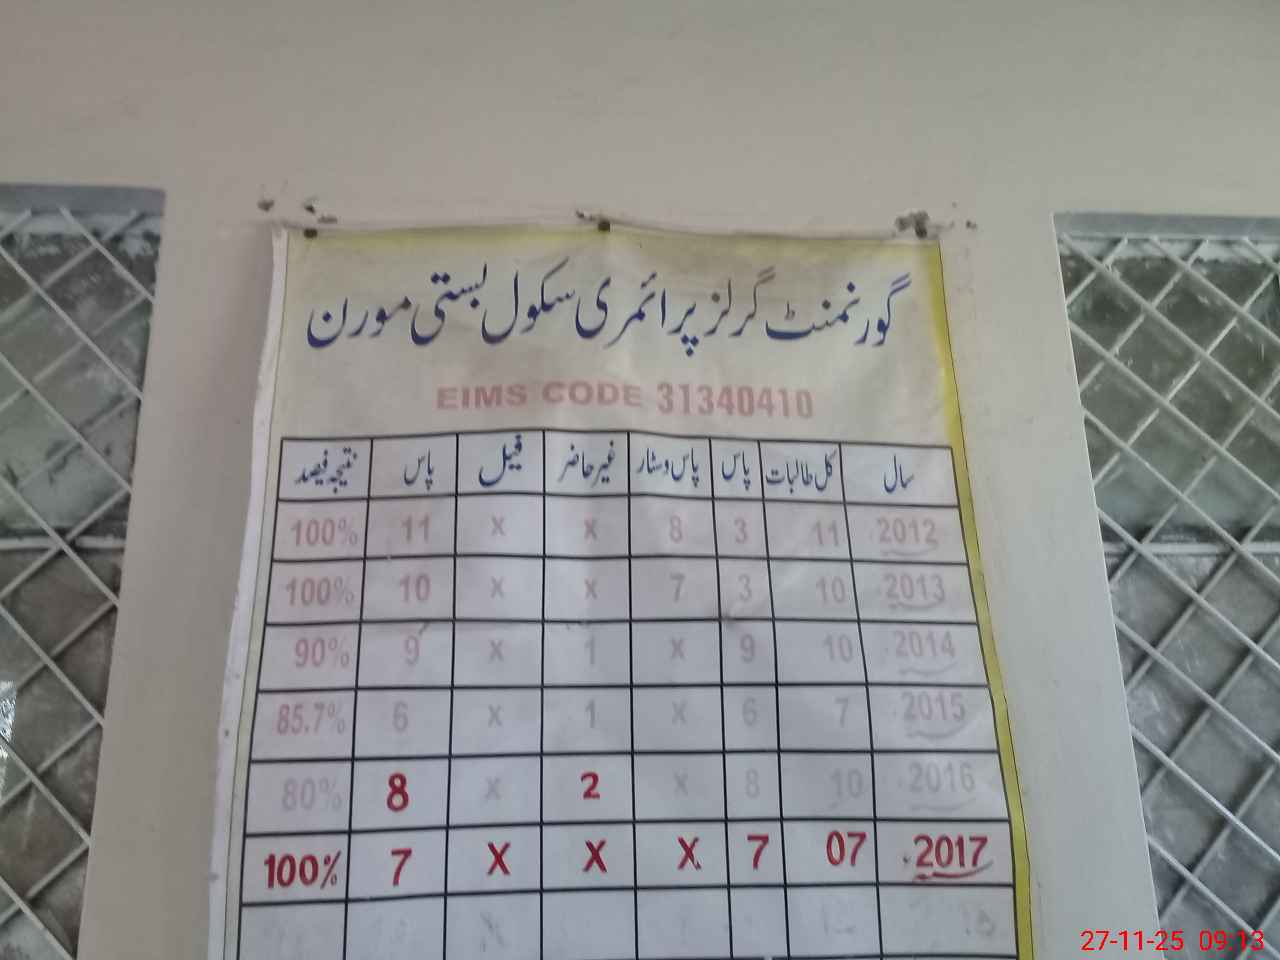 گورنمنٹ گرلز پرائمری سکول بستی مورن
EIMS CODE 31340410
سال کل طالبات پاس پاس وشار غیر حاضر فیل پاس نتیجہ فیصد
2012 11 3 8 x x 11 100%
2013 10 3 7 x x 10 100%
2014 10 9 x 1 x 9 90%
2015 7 6 x 1 x 6 85.7%
2016 10 8 x 2 x 8 80%
2017 07 7 X X X 7 100%
27-11-25 09:13